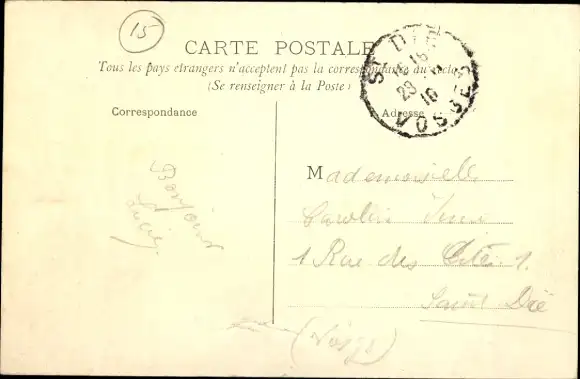 15
CARTE POSTALE
Tous les pays étrangers n'acceptent pas la correspondance au recto
(Se renseigner à la Poste)
ST DIÉ
16
23
10
VOSGES
Correspondance
Adresse
Bonjour
Lucie
Mademoiselle
1 Rue des 1.
Saint Dié
(Vosges)